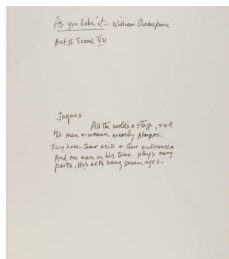 As you like it – William Shakespeare
Act II Scene VII
Jaques
All the worlds a stage, & all
the men & women merely Players.
They have their exits & their entrances
And one man in his time plays many
parts, His acts being seven ages.